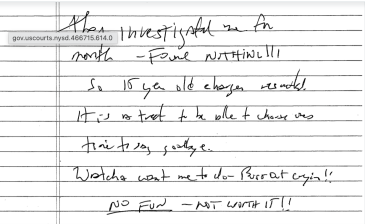 They investigated me for
gov.uscourts.nysd.466715.614.0
month - Found NOTHING!!!
So 15 year old charges resulted.
It is a treat to be able to choose ones
time to say goodbye.
Watcha want me to do - Bust out cryin!!
NO FUN - NOT WORTH IT!!